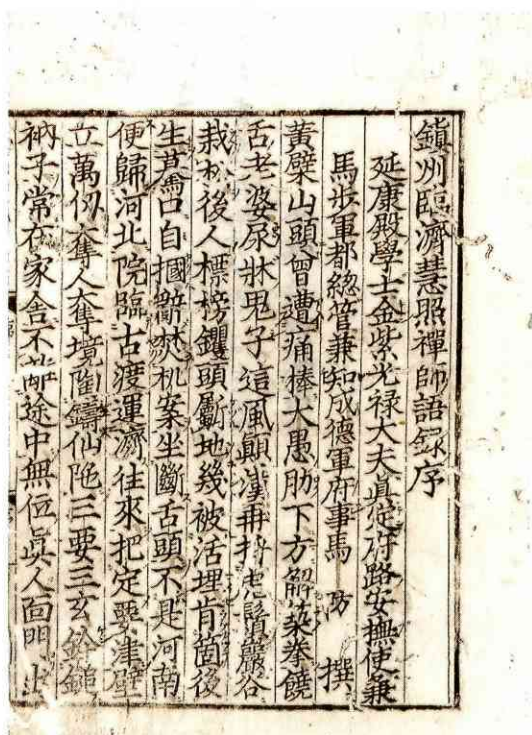 鎮州臨濟慧照禪師語録序
延康殿學士金紫光禄大夫眞定府路安撫使兼
馬步軍都緫管兼知成德軍府事馬 防 撰
黄檗山頭曾遭痛棒大愚肋下方解築拳饒
舌老婆尿牀鬼子這風顛漢再捋虎鬚巖谷
栽松後人標榜钁頭斸地幾被活埋肯箇後
生驀口自摑辭焚机案坐斷舌頭不是河南
便歸河北院臨古渡運濟往來把定要津壁
立萬仭奪人奪境陶鑄仙陁三要三玄鈐鎚
衲子常在家舍不離途中無位眞人面門出